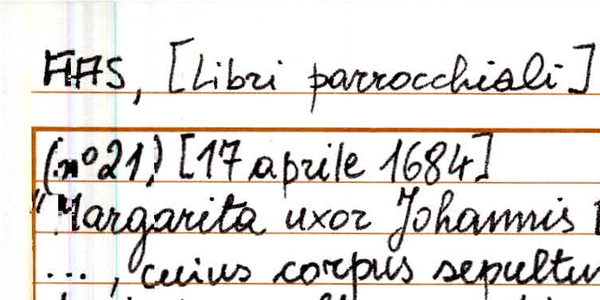 AAS, [Libri parrocchiali]
(n° 21) [17 aprile 1684]
"Margarita uxor Johannis
..., cuius corpus sepultu